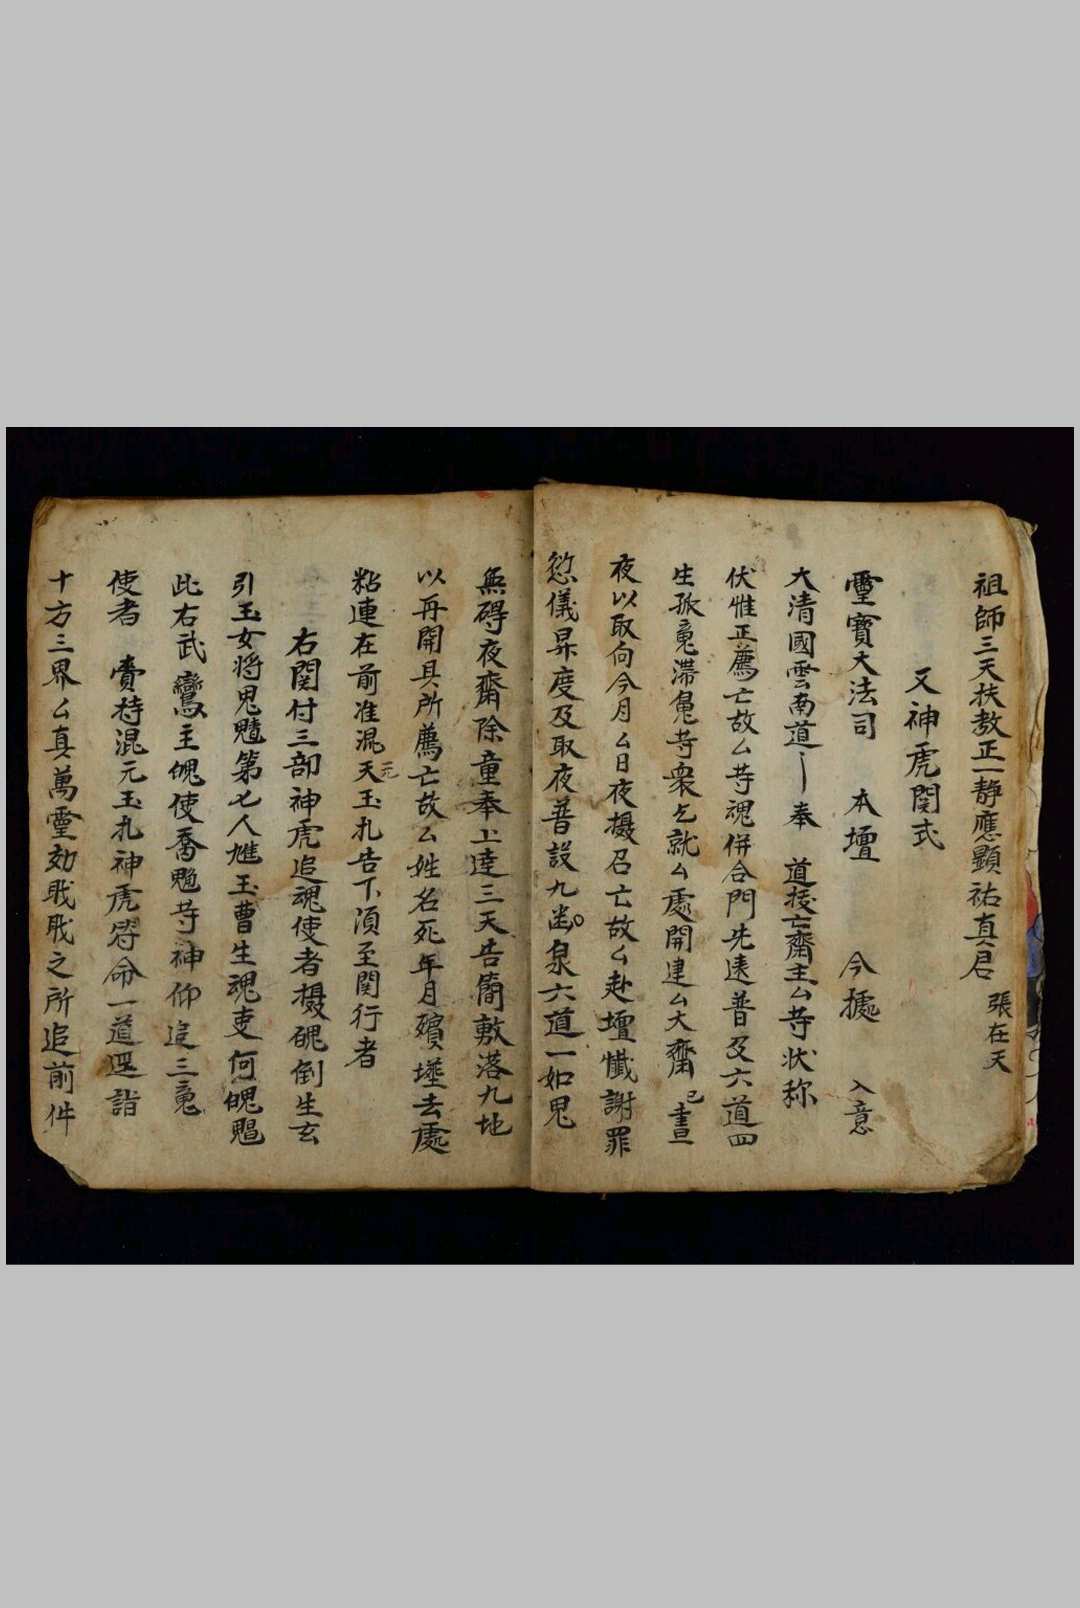 祖師三天扶教正一靜應顯祐真君 張在天
又神虎関式
靈寳大法司 本壇 今據 入意
大清國雲南道 奉 道接亡齋主厶等状称
伏惟正薦亡故厶等魂併合門先遠普及六道四
生孤魂滯魄等衆乞就厶處開建厶大齋 已晝
夜以取向今月厶日夜摄召亡故厶赴壇懺謝罪
愆儀昇度及取夜普設九幽泉六道一如鬼
無碍夜齋除童奉上達三天告簡敷落九地
以再開具所薦亡故厶姓名死年月殯塟去處
粘連在前准混天元玉札告下湏至関行者
右関付三部神虎追魂使者摄魄倒生玄
引玉女将鬼魕第七人尵玉曹生魂吏何魄
此右武鸞主魄使喬等神仰追三䰟
使者 賫持混元玉札神虎符命一道遥詣
十方三界厶真萬靈劾戢戢之所追前件